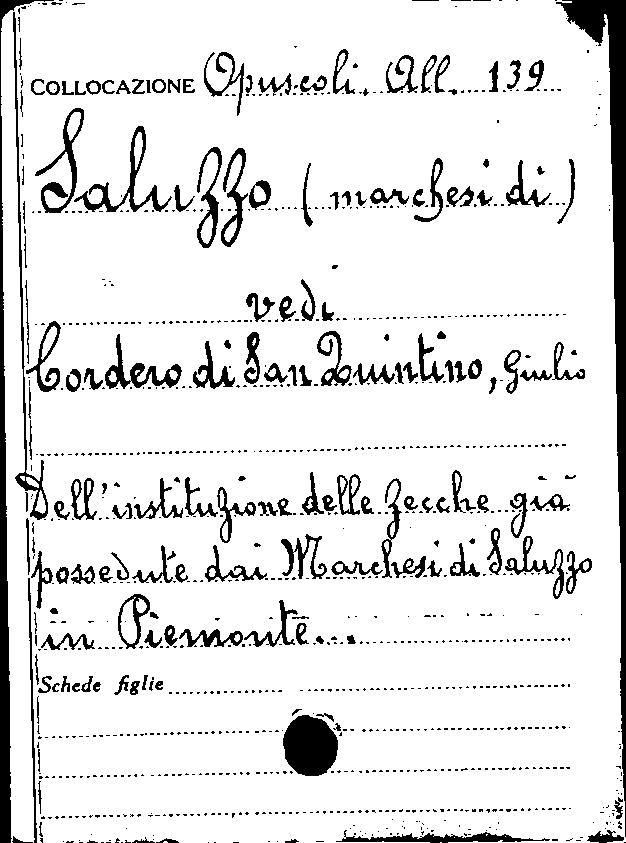 COLLOCAZIONE Opuscoli. All. 139
Saluzzo (marchesi di)
vedi
Cordero di San Quintino, Giulio
Dell'instituzione delle zecche già
possedute dai Marchesi di Saluzzo
in Piemonte...
Schede figlie